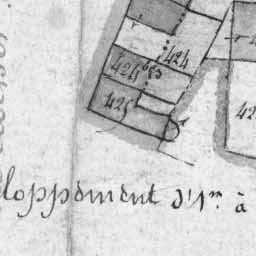 424
424 bis
425
42
loppement d'1m à